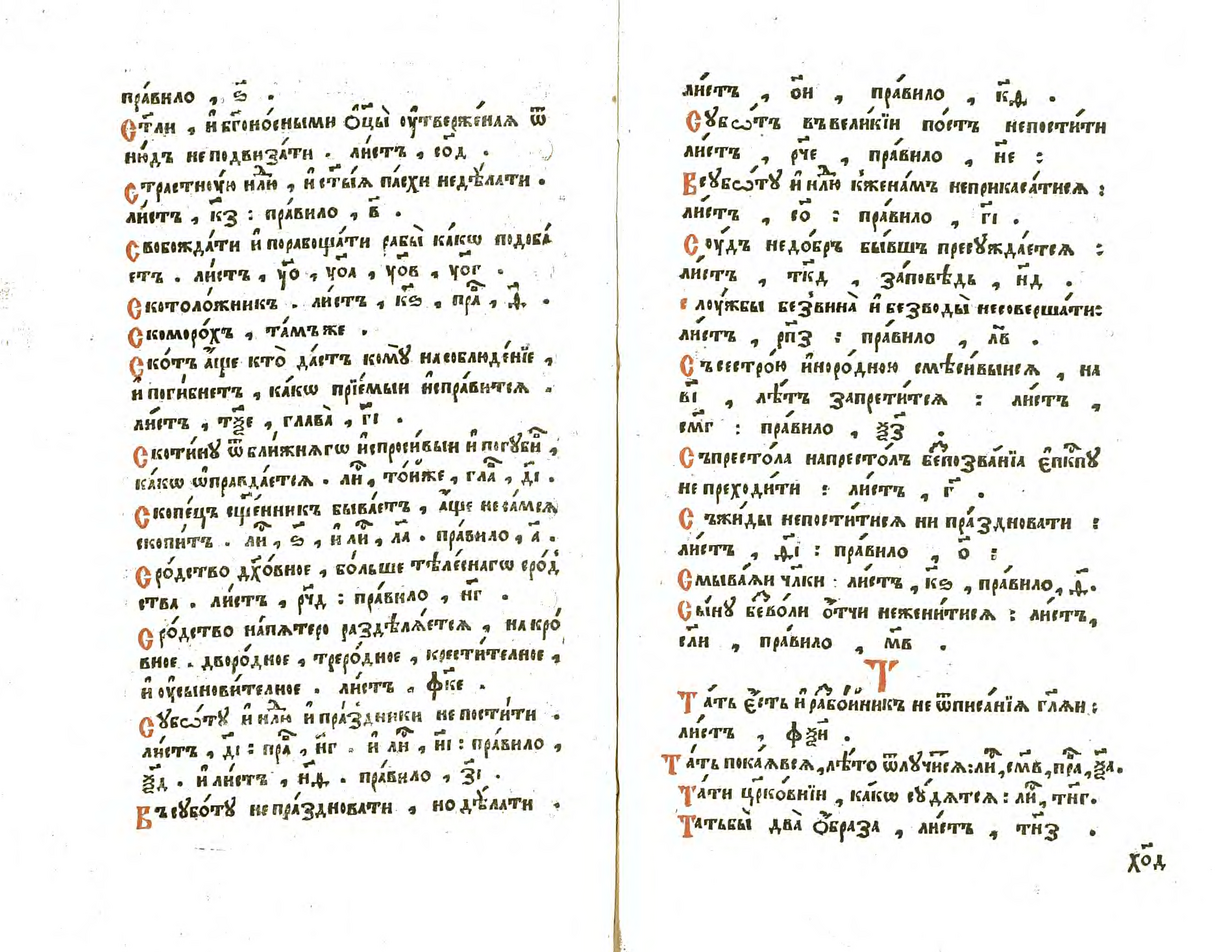 пра́вило , ѕ҃ .
Ст҃ли , и҆ бг҃оно́сными ѻ҆ц҃ы̀ ᲂу҆твержє́нїѧ ѿ
ню́дъ не подвиза́ти . ли́стъ , со҃д .
Страстнꙋ́ю нлⷣю , и҆ ст҃ы́ѧ па́схи не дѣ́лати .
ли́стъ , к҃з : пра́вило , в҃ .
Свобожда́ти и҆ порабоща́ти рабы̀ ка́кѡ подоба́
етъ . ли́стъ , ѵ҃о , ѵ҃оа , ѵ҃ов , ѵ҃ог .
Скотоло́жникъ . ли́стъ , к҃ѕ , праⷡ , д҃ .
Скоморо́хъ , та́мъ же .
Ско́тъ а҆́ще кто̀ да́стъ комꙋ̀ на соблюде́нїе ,
и҆ поги́бнетъ , ка́кѡ прїе́мыи и҆спра́витсѧ .
ли́стъ , т҃ѯе , глава̀ , г҃і .
Скоти́нꙋ ѿ бли́жнѧгѡ и҆спроси́выи и҆ погꙋби́ⷡ ,
ка́кѡ ѡ҆правда́етсѧ . лиⷭ , то́иже , глаⷡ , д҃і .
Скопе́цъ сщ҃е́нникъ быва́етъ , а҆́ще не са́мсѧ
скопи́тъ . лиⷭ , ѕ҃ , и҆ лиⷭ , л҃а . пра́вило , а҃ .
Сро́дство дх҃о́вное , бо́льше тѣле́снагѡ сро́д
ства . ли́стъ , р҃чд : пра́вило , н҃г .
Сро́дство на́пѧтеро раздѣлѧ́етсѧ , на кро́
вное . дворо́дное , треро́дное , крести́телное ,
и҆ ᲂу҆сынови́телное . ли́стъ . ф҃ке .
Сꙋббѡ́тꙋ и҆ нлⷣю и҆ пра́здники не пости́ти .
ли́стъ , д҃і : праⷡ , н҃г . и҆ лиⷭ , н҃і : пра́вило ,
ѯ҃д . и҆ ли́стъ , н҃д . пра́вило , з҃і .
Въ сꙋбо́тꙋ не пра́здновати , но дѣ́лати .
ли́стъ , о҃и , пра́вило , к҃д .
Сꙋбѡ́тъ въ вели́кїи по́стъ не пости́ти
ли́стъ , р҃че , пра́вило , н҃е :
В сꙋбѡ́тꙋ и҆ нлⷣю к҆ жена́мъ не прикаса́тисѧ :
ли́стъ , с҃о : пра́вило , г҃і .
Соу́дъ не до́бръ бы́вшъ пресꙋжда́етсѧ :
ли́стъ , т҃кд , за́повѣдь , н҃д .
слоу́жбы без̾ вина̀ и҆ без̾ воды̀ не соверша́ти :
ли́стъ , р҃пз : пра́вило , л҃в .
Съ сестро́ю и҆норо́дною смѣси́выисѧ , на
в҃і , лѣ́тъ запрети́тсѧ : ли́стъ ,
с҃мг : пра́вило , ѯ҃з .
Съ престо́ла на престо́лъ беⷥ позва́нїа є҆пⷭкпꙋ
не преходи́ти : ли́стъ , г҃ .
Съ жи́ды не пости́тисѧ ни пра́здновати :
ли́стъ , д҃і : пра́вило , о҃ :
Смыва́ѧи чл҃ки : ли́стъ , к҃ѕ , пра́вило , д҃ .
Сы́нꙋ беⷥ во́ли ѻ҆́тчи не жени́тисѧ : ли́стъ ,
с҃ли , пра́вило , м҃в .
Т
Та́ть є҆́сть и҆ раⷥбо́иникъ не ѿ писа́нїѧ гл҃ѧи :
ли́стъ , ф҃ѯи .
Та́ть пока́ѧвсѧ , лѣ́то ѿлꙋчи́тсѧ : лиⷭ , с҃мв , праⷡ , ѯ҃а .
Та́ти цр҃ко́внїи , ка́кѡ сꙋ́дѧтсѧ : лиⷭ , т҃нг .
Татьбы̀ два̀ ѻ҆́браза , ли́стъ , т҃нз .
х҃од